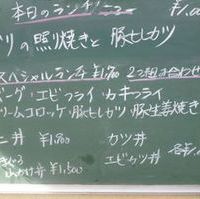 本日のランチメニュー ¥1,00
リの照り焼きと豚ヒレカツ
スペシャルランチ ¥1,700 2つ組み合わせ
バーグ・エビフライ・カキフライ
リームコロッケ・豚ヒレカツ・豚生姜焼き
ニ丼 ¥1,800 カツ丼
エビカツ丼
¥1,500